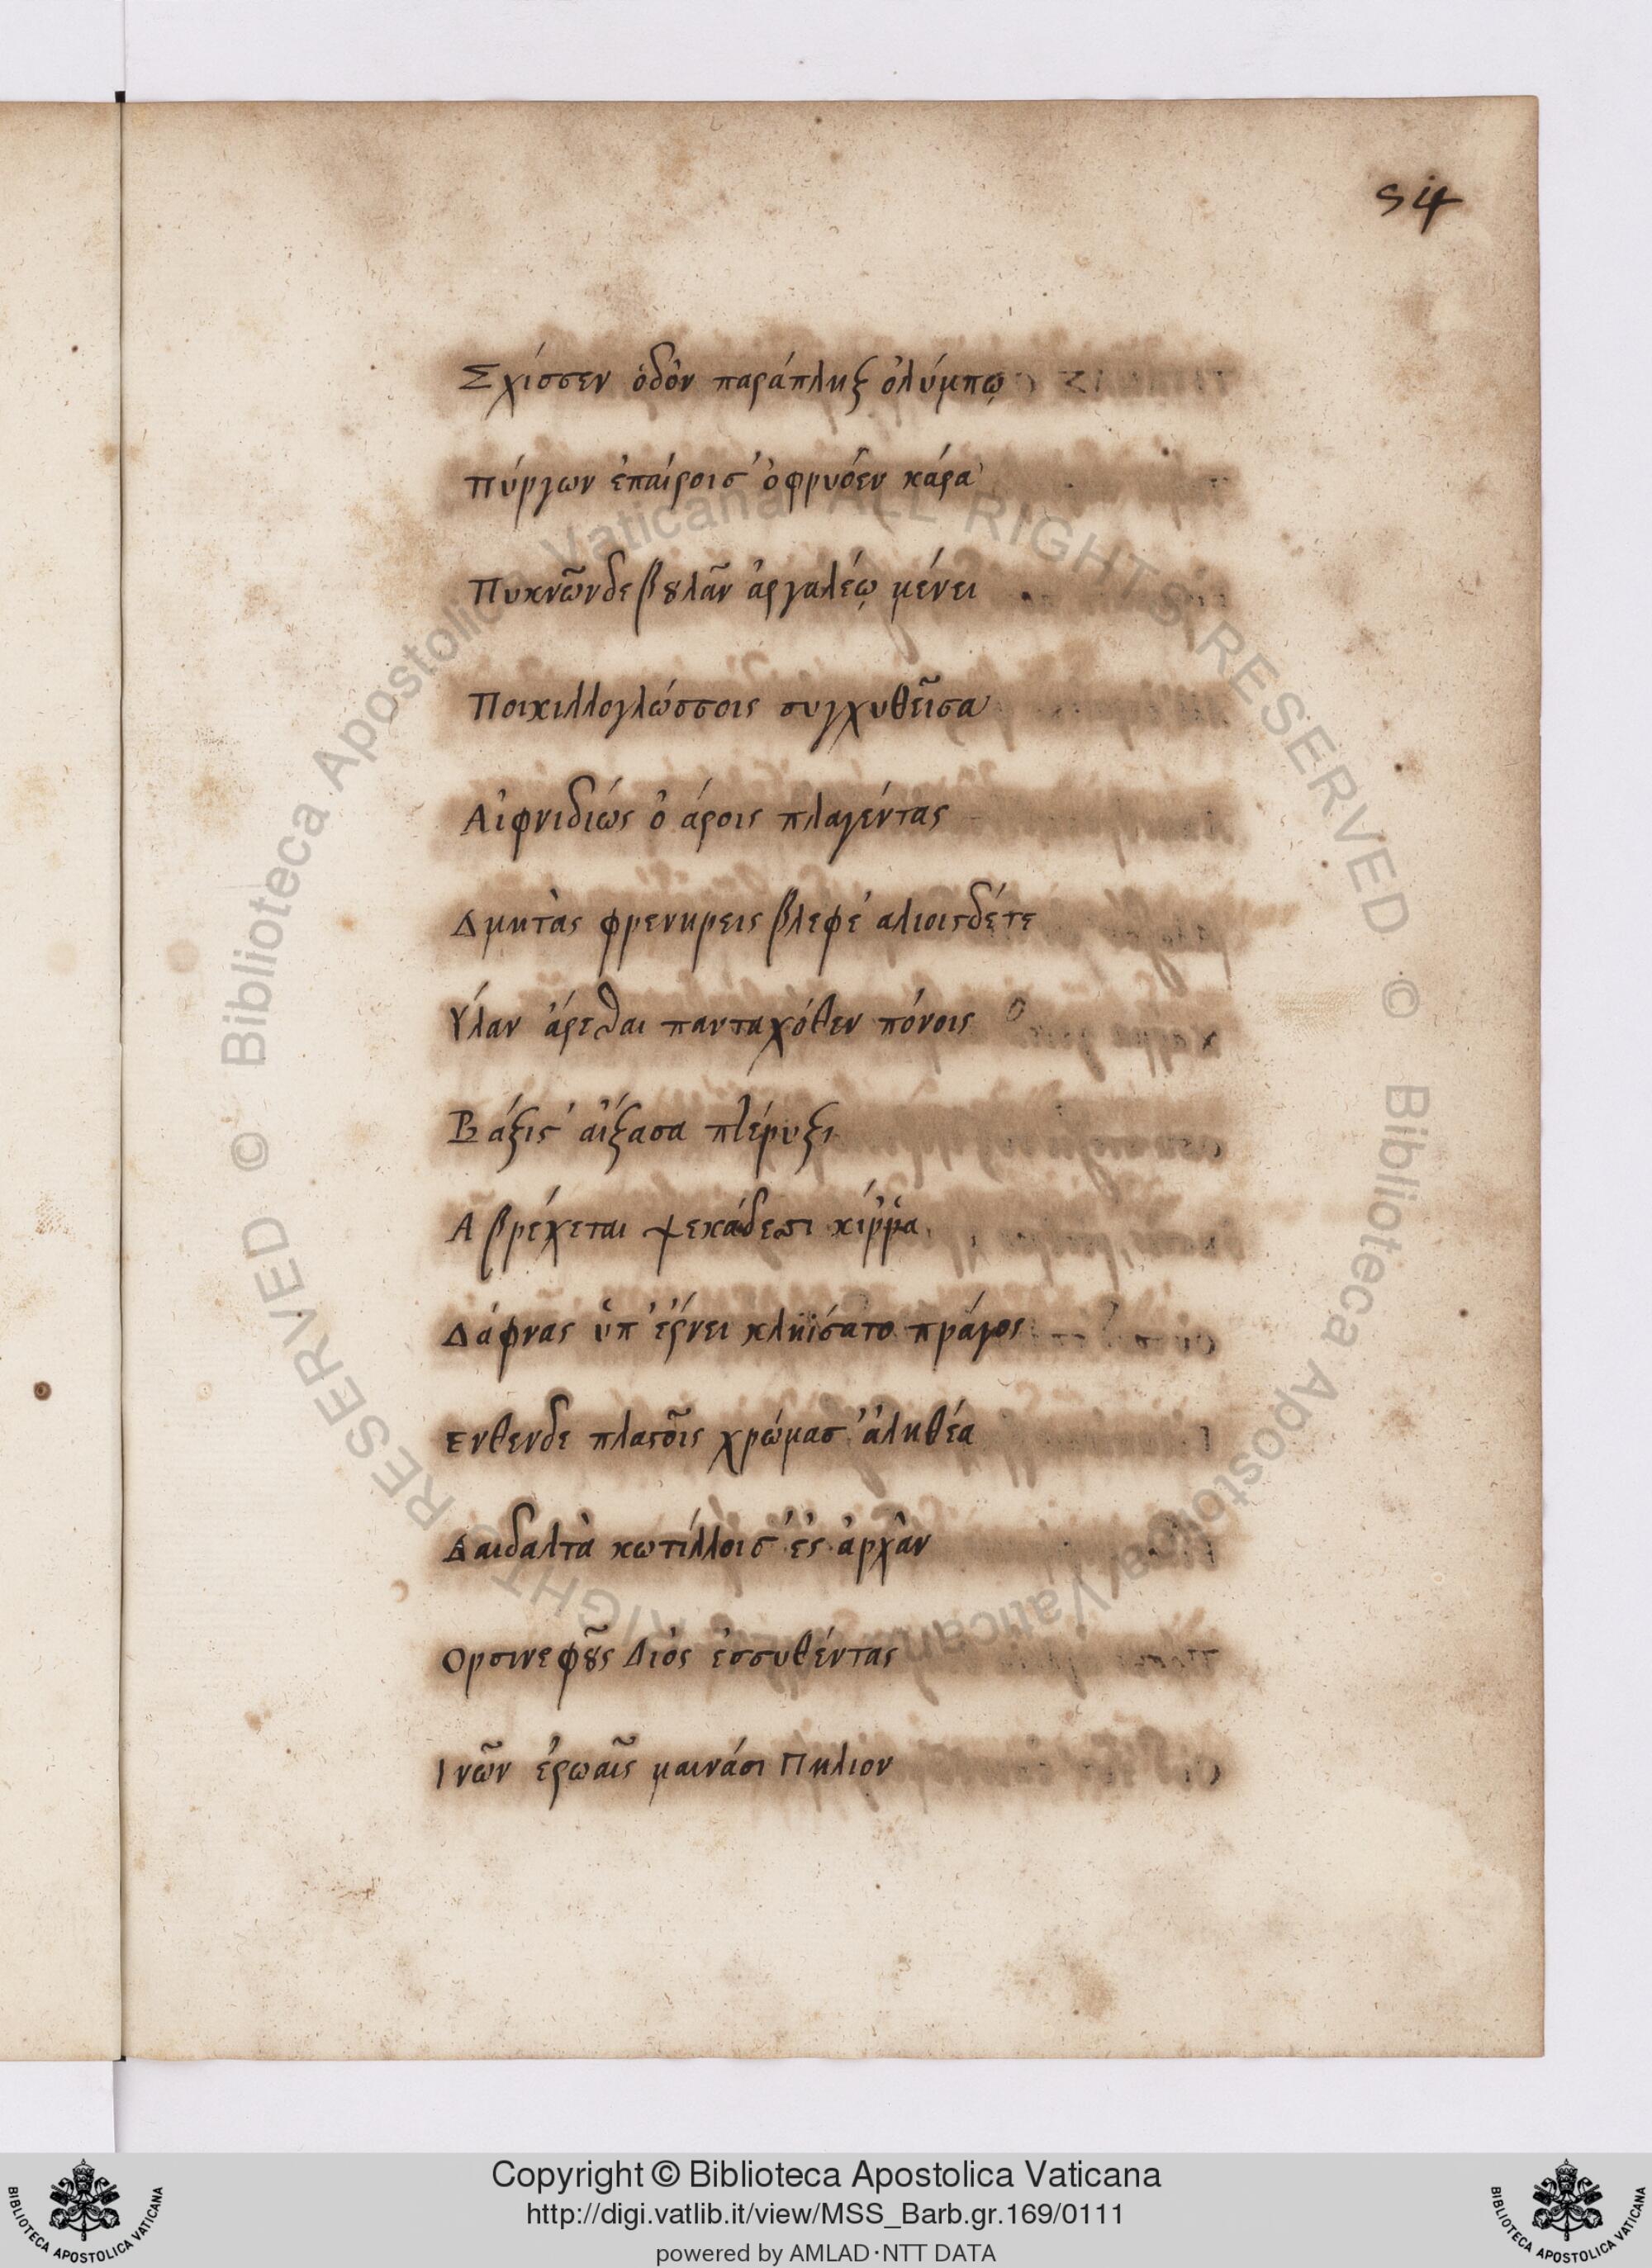 54
Σχίσσεν ὁδὸν παράπληξ ὀλύμπῳ
Πύργων ἐπαίροισ' ὀφρυόεν κάρα
Πυκνῶνδε βȣλᾶν ἀργαλέῳ μένει
Ποικιλλογλώσσοις συγχυθεῖσα
Αἰφνιδίως ὀ άροις πλαγέντας
Δμητὰς φρενήρεις βλεφέ αλιοισδέτε
Ύλαν ἀρεθαι πανταχόθεν πόνοις
Βάξις' αἴξασα πτέρυξι
Α βρέχεται ψεκάδεσι κίῤῥα
Δάφνας ὑπ' ἔρνει κληίσατο πράγος
Ενθενδε πλαςοῖς χρώμασ' ἀληθέα
Δαιδαλτὰ κωτίλλοισ' ἐς ἀρχὰν
Ορσινεφȣ͂ς Διός ἐσσυθέντας
Ινῶν ἐρωαῖς μαινάσι Πηλιον
Copyright © Biblioteca Apostolica Vaticana
http://digi.vatlib.it/view/MSS_Barb.gr.169/0111
powered by AMLAD·NTT DATA